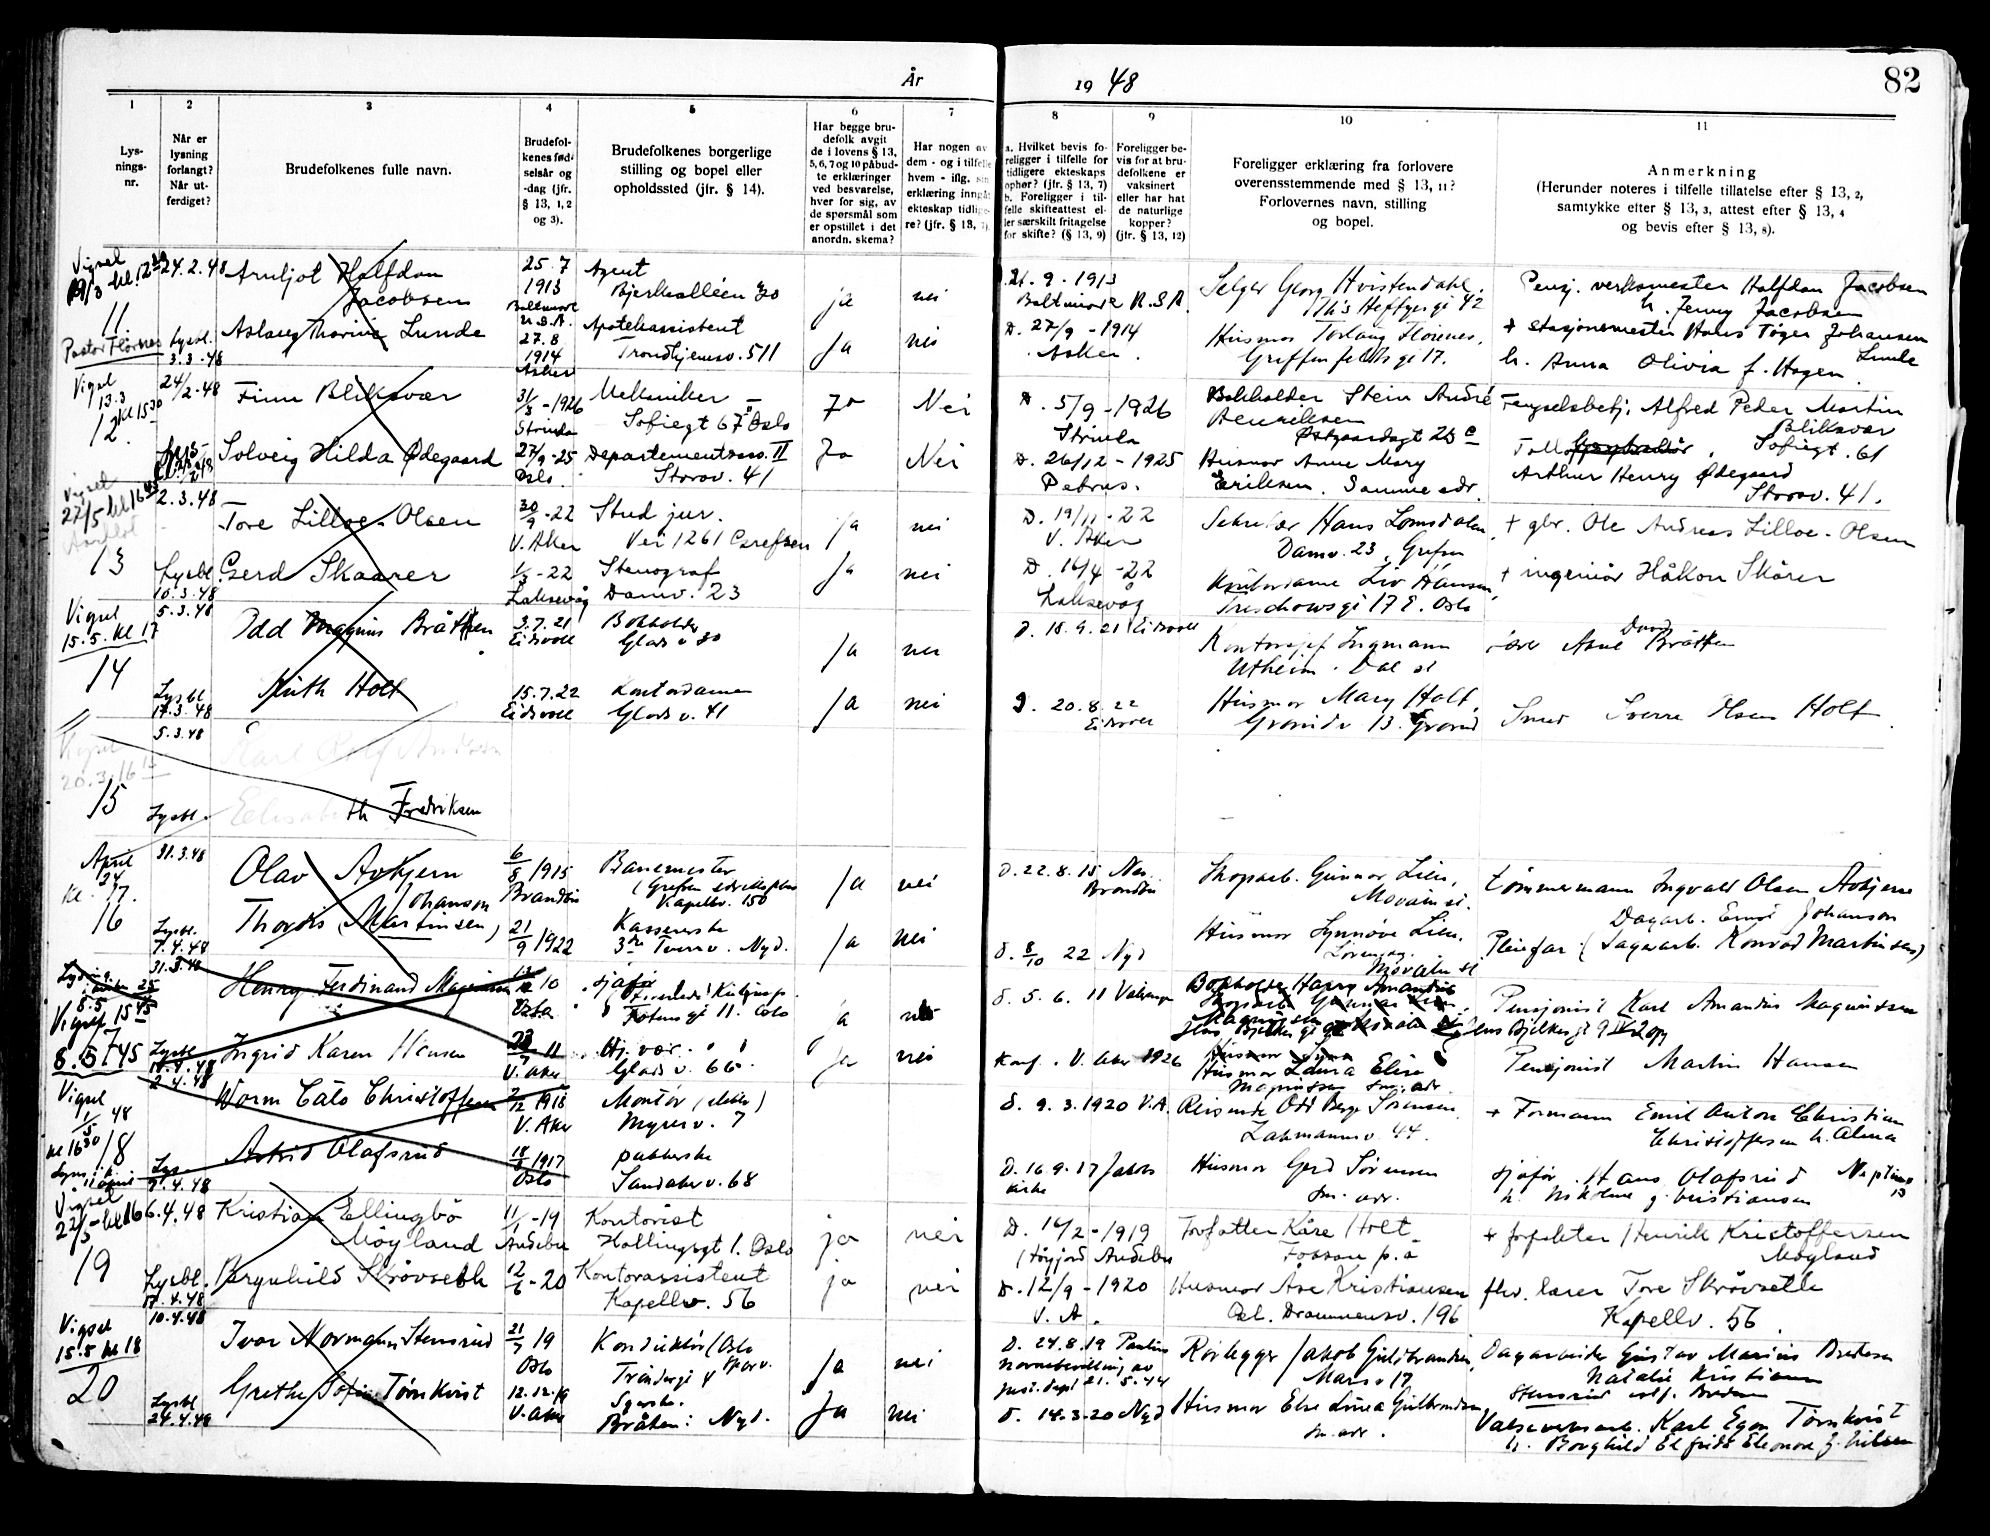 År 19 48
82
1 2 3 4 5 6 7 8 9 10 11
Lys-
nings-
nr.
Når er
lysning
forlangt?
Når ut-
ferdiget?
Brudefolkenes fulle navn.
Brudefol-
kenes fød-
selsår og
-dag (jfr.
§ 13, 1, 2
og 3).
Brudefolkenes borgerlige
stilling og bopel eller
opholdssted (jfr. § 14).
Har begge bru-
defolk avgit
de i lovens § 13,
5, 6, 7 og 10 påbud-
te erklæringer
ved besvarelse,
hver for sig, av
de spørsmål som
er opstillet i det
anordn. skema?
Har nogen av
dem - og i tilfelle
hvem - iflg. sin
erklæring inngått
ekteskap tidlige-
re? (jfr. § 13, 7)
a. Hvilket bevis fo-
religger i tilfelle for
tidligere ekteskaps
ophør? (jfr. § 13, 7)
b. Foreligger i til-
felle skifteattest el-
ler særskilt fritagelse
for skifte? (§ 13, 9)
Foreligger be-
vis for at bru-
defolkene er
vaksinert
eller har hat
de naturlige
kopper?
(jfr. § 13, 12)
Foreligger erklæring fra forlovere
overensstemmende med § 13, 11?
Forlovernes navn, stilling
og bopel.
Anmerkning
(Herunder noteres i tilfelle tillatelse efter § 13, 2,
samtykke efter § 13, 3, attest efter § 13, 4
og bevis efter § 13, 8).
Vigsel
11
24.2.48
Arnljot Halfdan
Jacobsen
25.7
1913
Baltimore
U.S.A.
Agent
Bjerkealléen 30
ja
nei
21.9.1913
Baltimore
Selger Georg Hvistendahl.
Ths Heftyesgt 42
Pensj. verksmester Halfdan Jacobsen
h. Jenny Jacobsen
Pastor Flornes
Lysbl.
3.3.48
Aslaug Thorine Lunde
27.8
1914
Asker
Apotekassistent
Trondhjemsv. 511
Ja
nei
D. 27/9 - 1914
Asker.
Husmor Torlaug Florenes,
Griffenfeldts gt 17.
+ stasjonsmester Hans Tøger Johansen
Lunde
h. Anna Olivia f. Hagen.
Vigsel
13.3
kl 15 30
12.
24/2-48
Finn Bliksvær
31/3 - 1926
Strinda
Mekaniker
Sofiegt 67 Oslo
Ja
Nei
D. 5/9 - 1926
Strinda
Bokholder Stein André
Henriksen
Østgaardsgt 25 c
Fengselsbetj. Alfred Peder Martin
Bliksvær
Sofiegt. 61
Solveig Hilda Ødegaard
27/9-25
Oslo.
Departementsass. II
Storov. 41
Ja
Nei
D. 26/12 - 1925
Petrus.
Husmor Anne Mary
Eriksen. Samme adr.
Arthur Henry Ødegaard
Storov. 41.
Vigsel
22/5 kl 16 45
13
2.3.48
Tore Lilloe-Olsen
30/9 -22
V. Aker
Stud jur.
Vei 1261 Grefsen
ja
nei
D. 19/11 - 22
V. Aker
Sekretær Hans Lomsdalen
Damv. 23, Grefsen
+ gbr. Ole Andreas Lilloe-Olsen
Lysbl.
10.3.48
Gerd Skaarer
1/3 - 22
Laksevåg
Stenograf
Damv. 23
Ja
nei
D. 16/4 -22
Laksevåg
Kontordame Liv Hansen,
Treschowsgt 17 E. Oslo
+ ingeniør Håkon Skårer
Vigsel
15.5. kl 17
14
5.3.48
Odd Magnus Bråthen
3.7.21
Eidsvoll
Bokholder
Glads v 30
Ja
nei
D. 18.9.21 Eidsvoll
Kontorsjef Ingmann
Utheim. Dal st
Bråthen
Lysbl
17.3.48
Ruth Holt
15.7.22
Eidsvoll
Kontordame
Glads v. 41
Ja
nei
D. 20.8.22
Eidsvoll
Husmor Mary Holt,
Grorudv 13. Grorud
Smed Sverre Olsen Holt
Vigsel
20.3.16 15
15
5.3.48
Karl Rolf Andersen
Lysbl.
Elisabeth Fredriksen
April
24
kl. 17.
16
31.3.48
Olav Avkjern
6/8 1915
Brandbu
Banemester
Kapellv. 150
Ja
nei
D. 22.8.15 Nes
Brandbu
Skogsarb. Gunnar Lien,
Movatn st.
tømmermann Ingvald Olsen
Lysbl.
7.4.48
Johanson
Thordis (Martinsen)
21/9 1922
Kassererske
3dje Tverrv. Nyd.
Ja
nei
D. 8/10 22 Nyd
Husmor Synnøve Lien,
Movatn st
Dagarb. Ernst Johanson
Pleiefar: (Sagarb. Konrad Martinsen)
Vigsel
8.5. 17 45
31.3.48
Henry Ferdinand Magnussen
Oslo
Sjåfør
Fotens gt 11. Oslo
D. 5.6.11 Vålereng
Bokholder Harry Amandus
Magnussen
Pensjonist Karl Amandus Magnussen
Jens Bjelkes gt 9
Lysbl
Ingrid Karen Hansen
V. Aker
Glads v. 66
Ja
nei
Konf. V. Aker 1926
Husmor Laura Elise
Magnussen sm. adr
Pensjonist Martin Hansen
Vigsel
1/5 48
kl 16 30
18
2.4.48
Worm Cato Christoffersen
2/12 1918
V. Aker
Montør (elektr)
Myrerv. 7
D. 9.3.1920 V.A.
Reisende Odd Berge Sørensen
Lakmannsv. 44.
+ Formann Emil Anton Christian
Christoffersen h. Alma
Lys.
9.4.48
Astrid Olafsrud
18/8 1917
Oslo
pakkerske
Sandakerv. 68
D. 16.9.17 Jakobs
kirke
Husmor Gerd Sørensen
sm. adr.
Sjåfør Hans Olafsrud
Vigsel
22/5 - kl 16
19
6.4.48
Kristian Ellingbø
Møyland
11/1 - 19
Andebu
Kontorist
Hallingsgt 1. Oslo
ja
nei
D. 16/2 - 1919
(Høyjord Andebu
Forfatter Kåre Holt
Fossan p.å
+ forpakter Henrik Kristoffersen
Møyland
Lysbl.
17.4.48
Bergnhild Skrøvseth
12/6 - 20
Kontorassistent
Kapellv. 56
ja
nei
D. 12/9 - 1920
V. A.
Husmor Åse Kristiansen
Oslo. Drammensv. 196
fhv. lærer Tore Skrøvseth
Kapellv. 56.
Vigsel
15.5 kl 18
20
10.4.48
Ivar Normann Stensrud
21/7 19
Oslo
Konduktør (Oslo
Sporv.
Trondergt 4
Ja
nei
D. 24.8.19 Paulus
Navnebevilling av
just. dept 21.5.44
Rørlegger Jakob Guldbrandsen,
Mars v 17
Dagarbeider Gustav Marius Bredesen
Natalie Kristiansen
Lysbl
24.4.48
Grethe Sofie Tørnkvist
12.12.19
V. Aker
Syerske.
Bråten: Nyd.
Ja
nei
D. 14-3-20 Nyd
Husmor Else Livia Gulbrandsen,
sm. adr.
Valseverksarb. Karl Egon Tørnkvist
h. Borghild Elfride Eleonora f. Nilsen